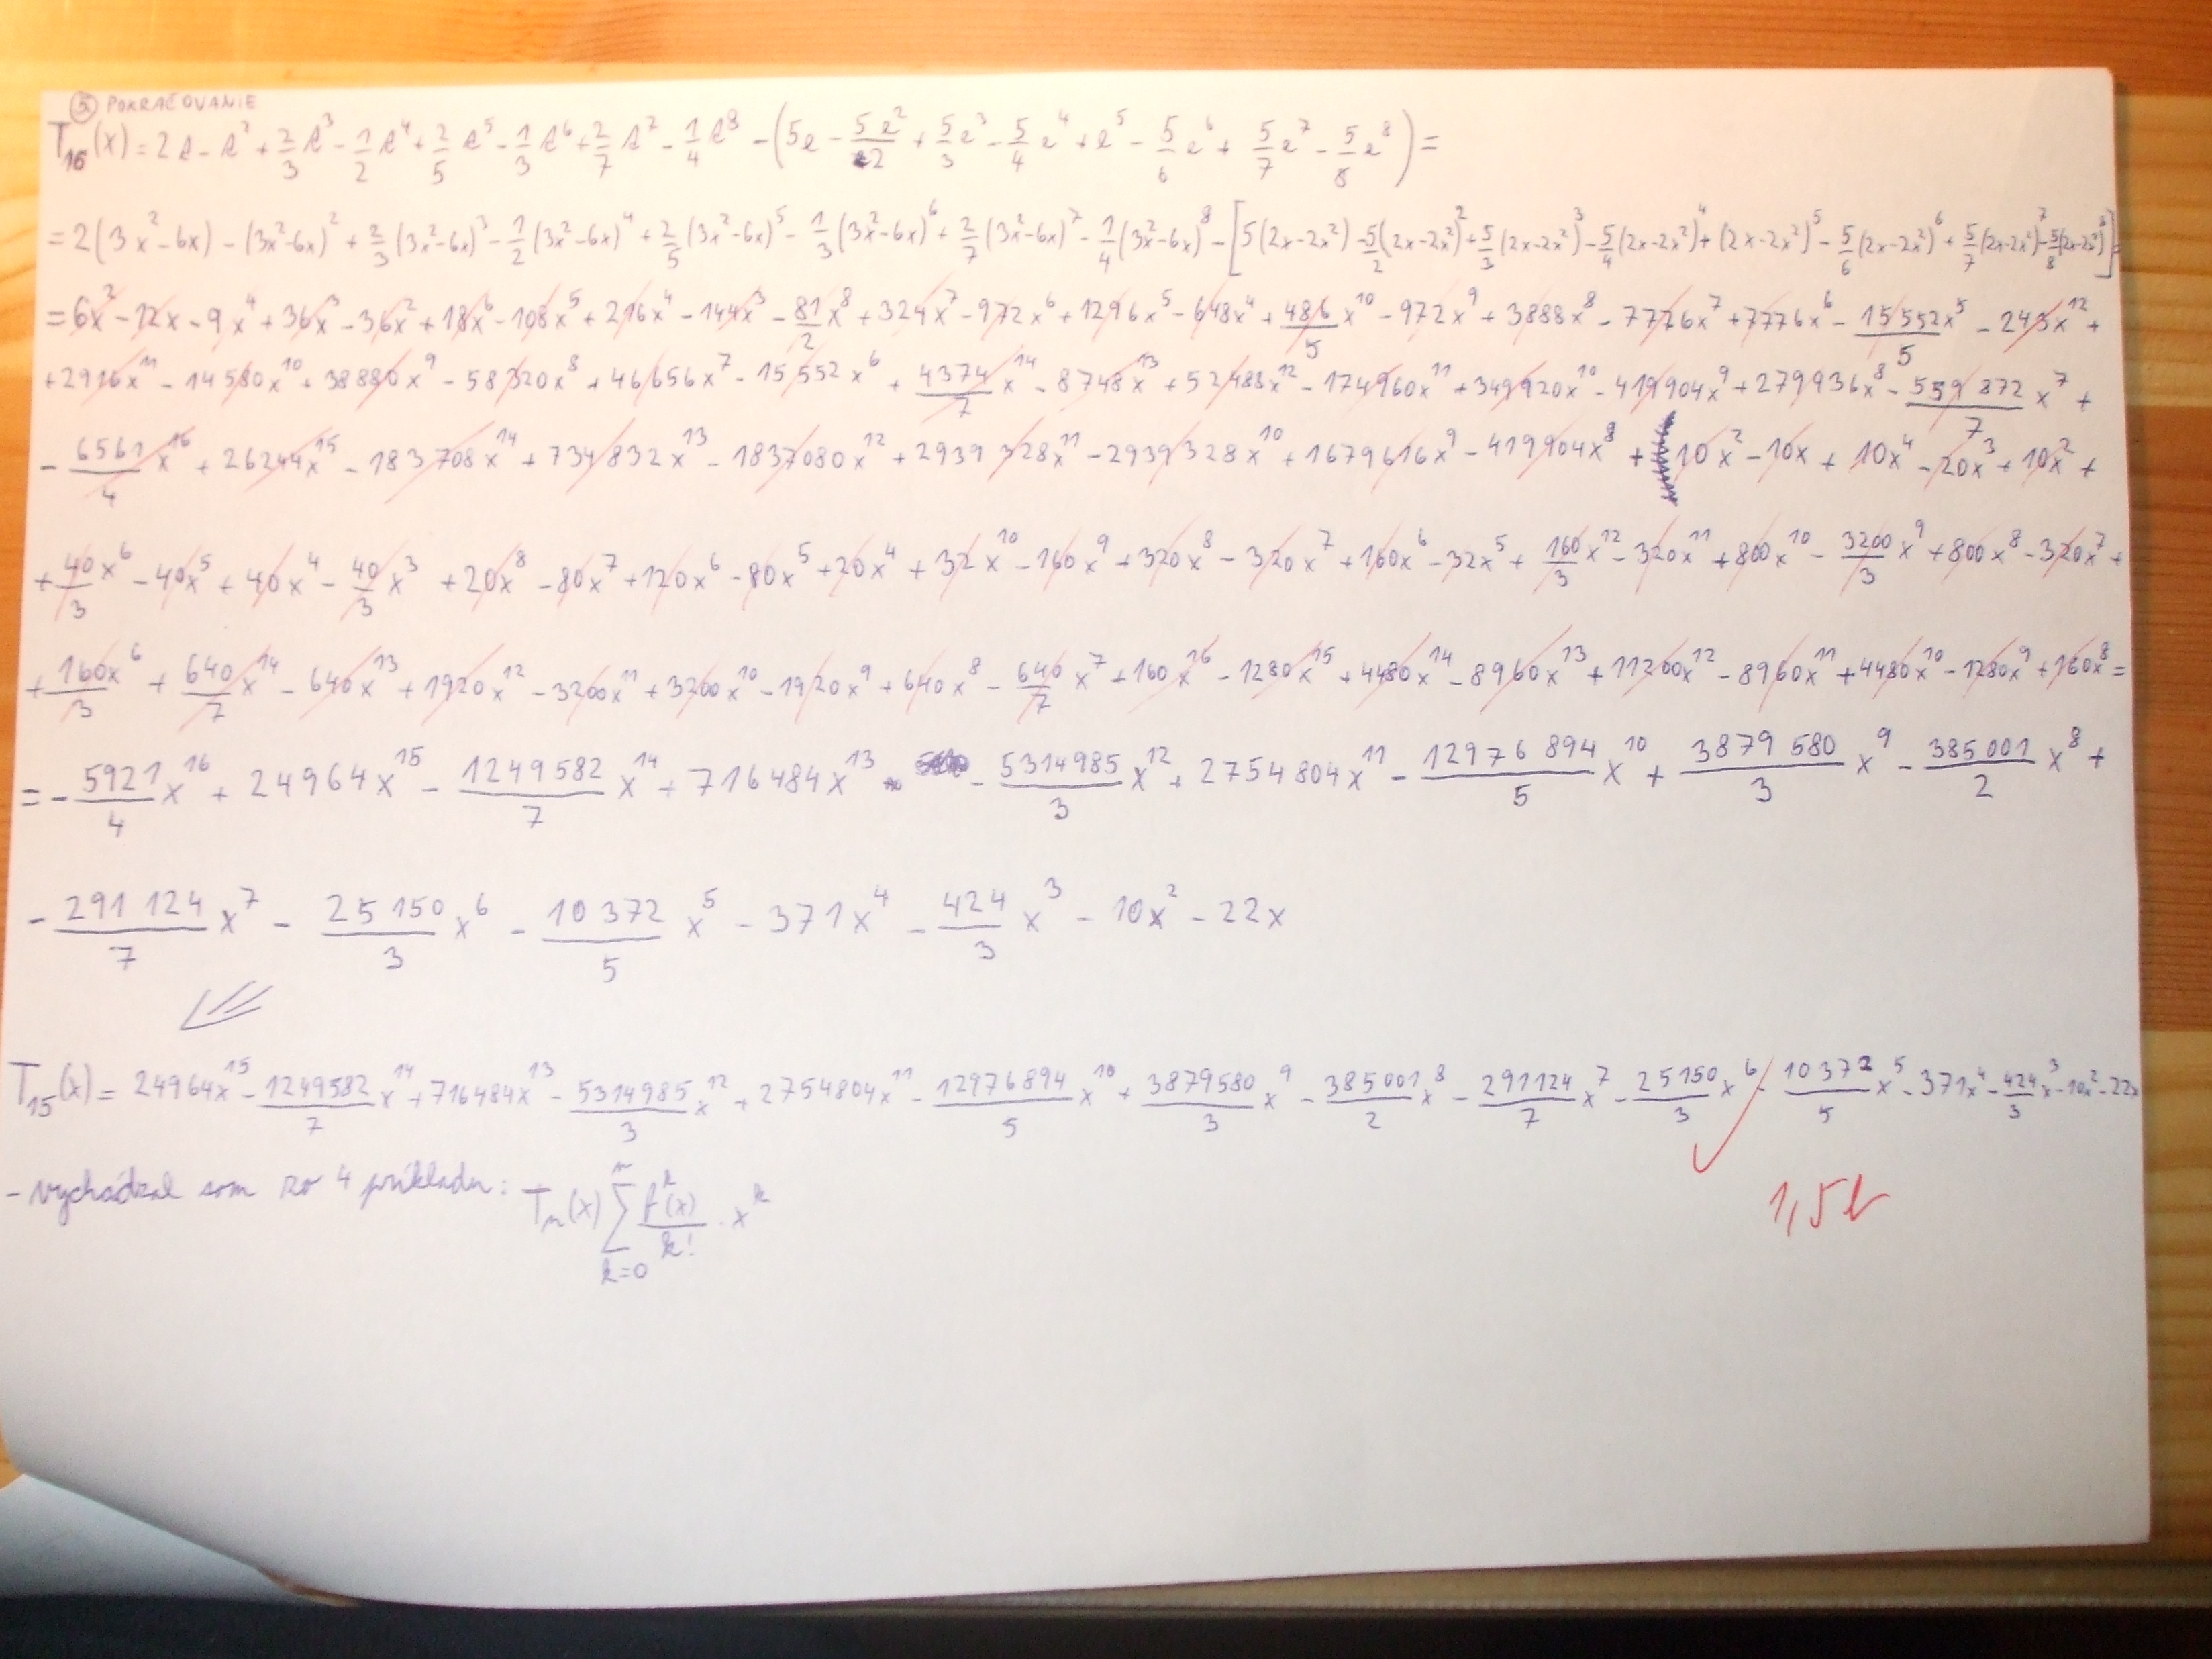 ⑤ POKRAČOVANIE
T₁₆(x) = 2t - t² + 2/3 t³ - 1/2 t⁴ + 2/5 t⁵ - 1/3 t⁶ + 2/7 t⁷ - 1/4 t⁸ - (5z - 5z²/2 + 5/3 z³ - 5/4 z⁴ + z⁵ - 5/6 z⁶ + 5/7 z⁷ - 5/8 z⁸) =
= 2(3x²-6x) - (3x²-6x)² + 2/3 (3x²-6x)³ - 1/2 (3x²-6x)⁴ + 2/5 (3x²-6x)⁵ - 1/3 (3x²-6x)⁶ + 2/7 (3x²-6x)⁷ - 1/4 (3x²-6x)⁸ - [5(2x-2x²) - 5/2 (2x-2x²)² + 5/3 (2x-2x²)³ - 5/4 (2x-2x²)⁴ + (2x-2x²)⁵ - 5/6 (2x-2x²)⁶ + 5/7 (2x-2x²)⁷ - 5/8 (2x-2x²)⁸] =
= 6x² - 12x - 9x⁴ + 36x³ - 36x² + 18x⁶ - 108x⁵ + 216x⁴ - 144x³ - 81/2 x⁸ + 324x⁷ - 972x⁶ + 1296x⁵ - 648x⁴ + 486/5 x¹⁰ - 972x⁹ + 3888x⁸ - 7776x⁷ + 7776x⁶ - 15552/5 x⁵ - 243x¹² +
+ 2916x¹¹ - 14580x¹⁰ + 38880x⁹ - 58320x⁸ + 46656x⁷ - 15552x⁶ + 4374/7 x¹⁴ - 8748x¹³ + 52488x¹² - 174960x¹¹ + 349920x¹⁰ - 419904x⁹ + 279936x⁸ - 559872/7 x⁷ +
- 6561/4 x¹⁶ + 26244x¹⁵ - 183708x¹⁴ + 734832x¹³ - 1837080x¹² + 2939328x¹¹ - 2939328x¹⁰ + 1679616x⁹ - 419904x⁸ + 10x² - 10x + 10x⁴ - 20x³ + 10x² +
+ 40/3 x⁶ - 40x⁵ + 40x⁴ - 40/3 x³ + 20x⁸ - 80x⁷ + 120x⁶ - 80x⁵ + 20x⁴ + 32x¹⁰ - 160x⁹ + 320x⁸ - 320x⁷ + 160x⁶ - 32x⁵ + 160/3 x¹² - 320x¹¹ + 800x¹⁰ - 3200/3 x⁹ + 800x⁸ - 320x⁷ +
+ 160/3 x⁶ + 640/7 x¹⁴ - 640x¹³ + 1920x¹² - 3200x¹¹ + 3200x¹⁰ - 1920x⁹ + 640x⁸ - 640/7 x⁷ + 160x¹⁶ - 1280x¹⁵ + 4480x¹⁴ - 8960x¹³ + 11200x¹² - 8960x¹¹ + 4480x¹⁰ - 1280x⁹ + 160x⁸ =
= - 5921/4 x¹⁶ + 24964x¹⁵ - 1249582/7 x¹⁴ + 716484x¹³ - 5314985/3 x¹² + 2754804x¹¹ - 12976894/5 x¹⁰ + 3879580/3 x⁹ - 385001/2 x⁸ +
- 291124/7 x⁷ - 25150/3 x⁶ - 10372/5 x⁵ - 371x⁴ - 424/3 x³ - 10x² - 22x
T₁₅(x) = 24964x¹⁵ - 1249582/7 x¹⁴ + 716484x¹³ - 5314985/3 x¹² + 2754804x¹¹ - 12976894/5 x¹⁰ + 3879580/3 x⁹ - 385001/2 x⁸ - 291124/7 x⁷ - 25150/3 x⁶ - 10372/5 x⁵ - 371x⁴ - 424/3 x³ - 10x² - 22x
- vychádzal som zo 4 príkladu: Tₙ(x) ∑ₖ₌₀ⁿ fᵏ(x)/k! · xᵏ
1,5b